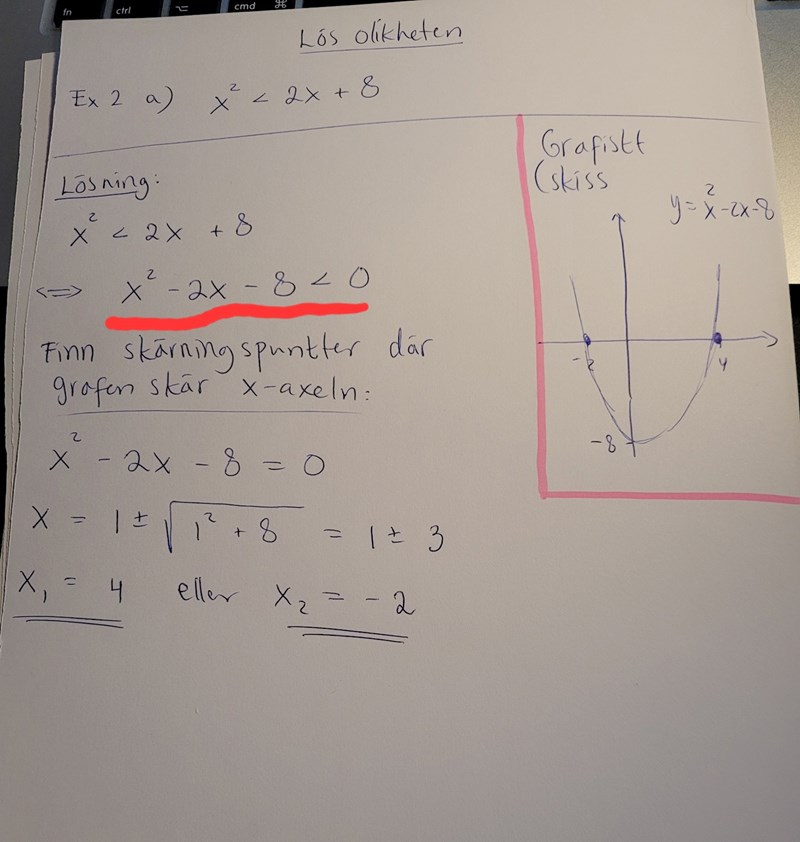 fn ctrl ⌥ cmd ⌘
Lös olikheten
Ex 2 a) x² < 2x + 8
Lösning:
x² < 2x + 8
<=> x² - 2x - 8 < 0
Finn skärningspunkter där
grafen skär x-axeln:
x² - 2x - 8 = 0
x = 1 ± √(1² + 8) = 1 ± 3
x₁ = 4 eller x₂ = -2
Grafiskt
(skiss
y = x² - 2x - 8
-2 4
-8